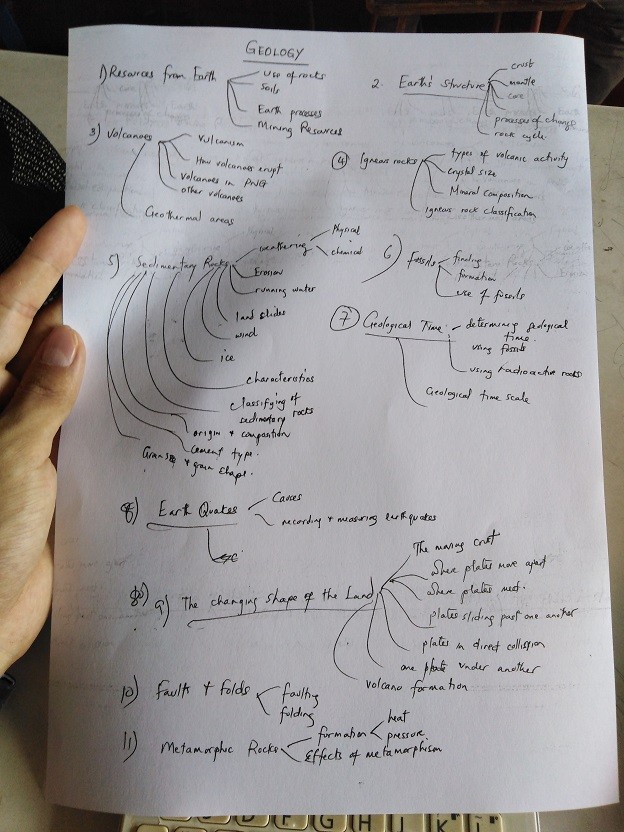 GEOLOGY
1) Resources from Earth
use of rocks
soils
Earth processes
Mining Resources
2. Earth's Structure
crust
mantle
core
processes of change
rock cycle
3) Volcanoes
Vulcanism
How volcanoes erupt
Volcanoes in PNG
other volcanoes
Geothermal areas
4 Igneous rocks
types of volcanic activity
crystal size
Mineral composition
Igneous rock classification
5) Sedimentary Rocks
weathering
physical
chemical
Erosion
running water
land slides
wind
ice
characteristics
classifying of
sedimentary rocks
origin + composition
cement type.
Grain size + grain shape.
6) Fossils
finding
formation
use of fossils
7 Geological Time
determining geological
time.
using fossils
using radioactive rocks
Geological time scale
8) Earth Quakes
Causes
recording + measuring earthquakes
9) The changing shape of the Land
The moving crust
where plates move apart
where plates meet.
plates sliding past one another
plates in direct collision
one plate under another
volcano formation
10) Faults + folds
faulting
folding
11) Metamorphic Rocks
formation
heat
pressure
Effects of metamorphism
D F G H J K